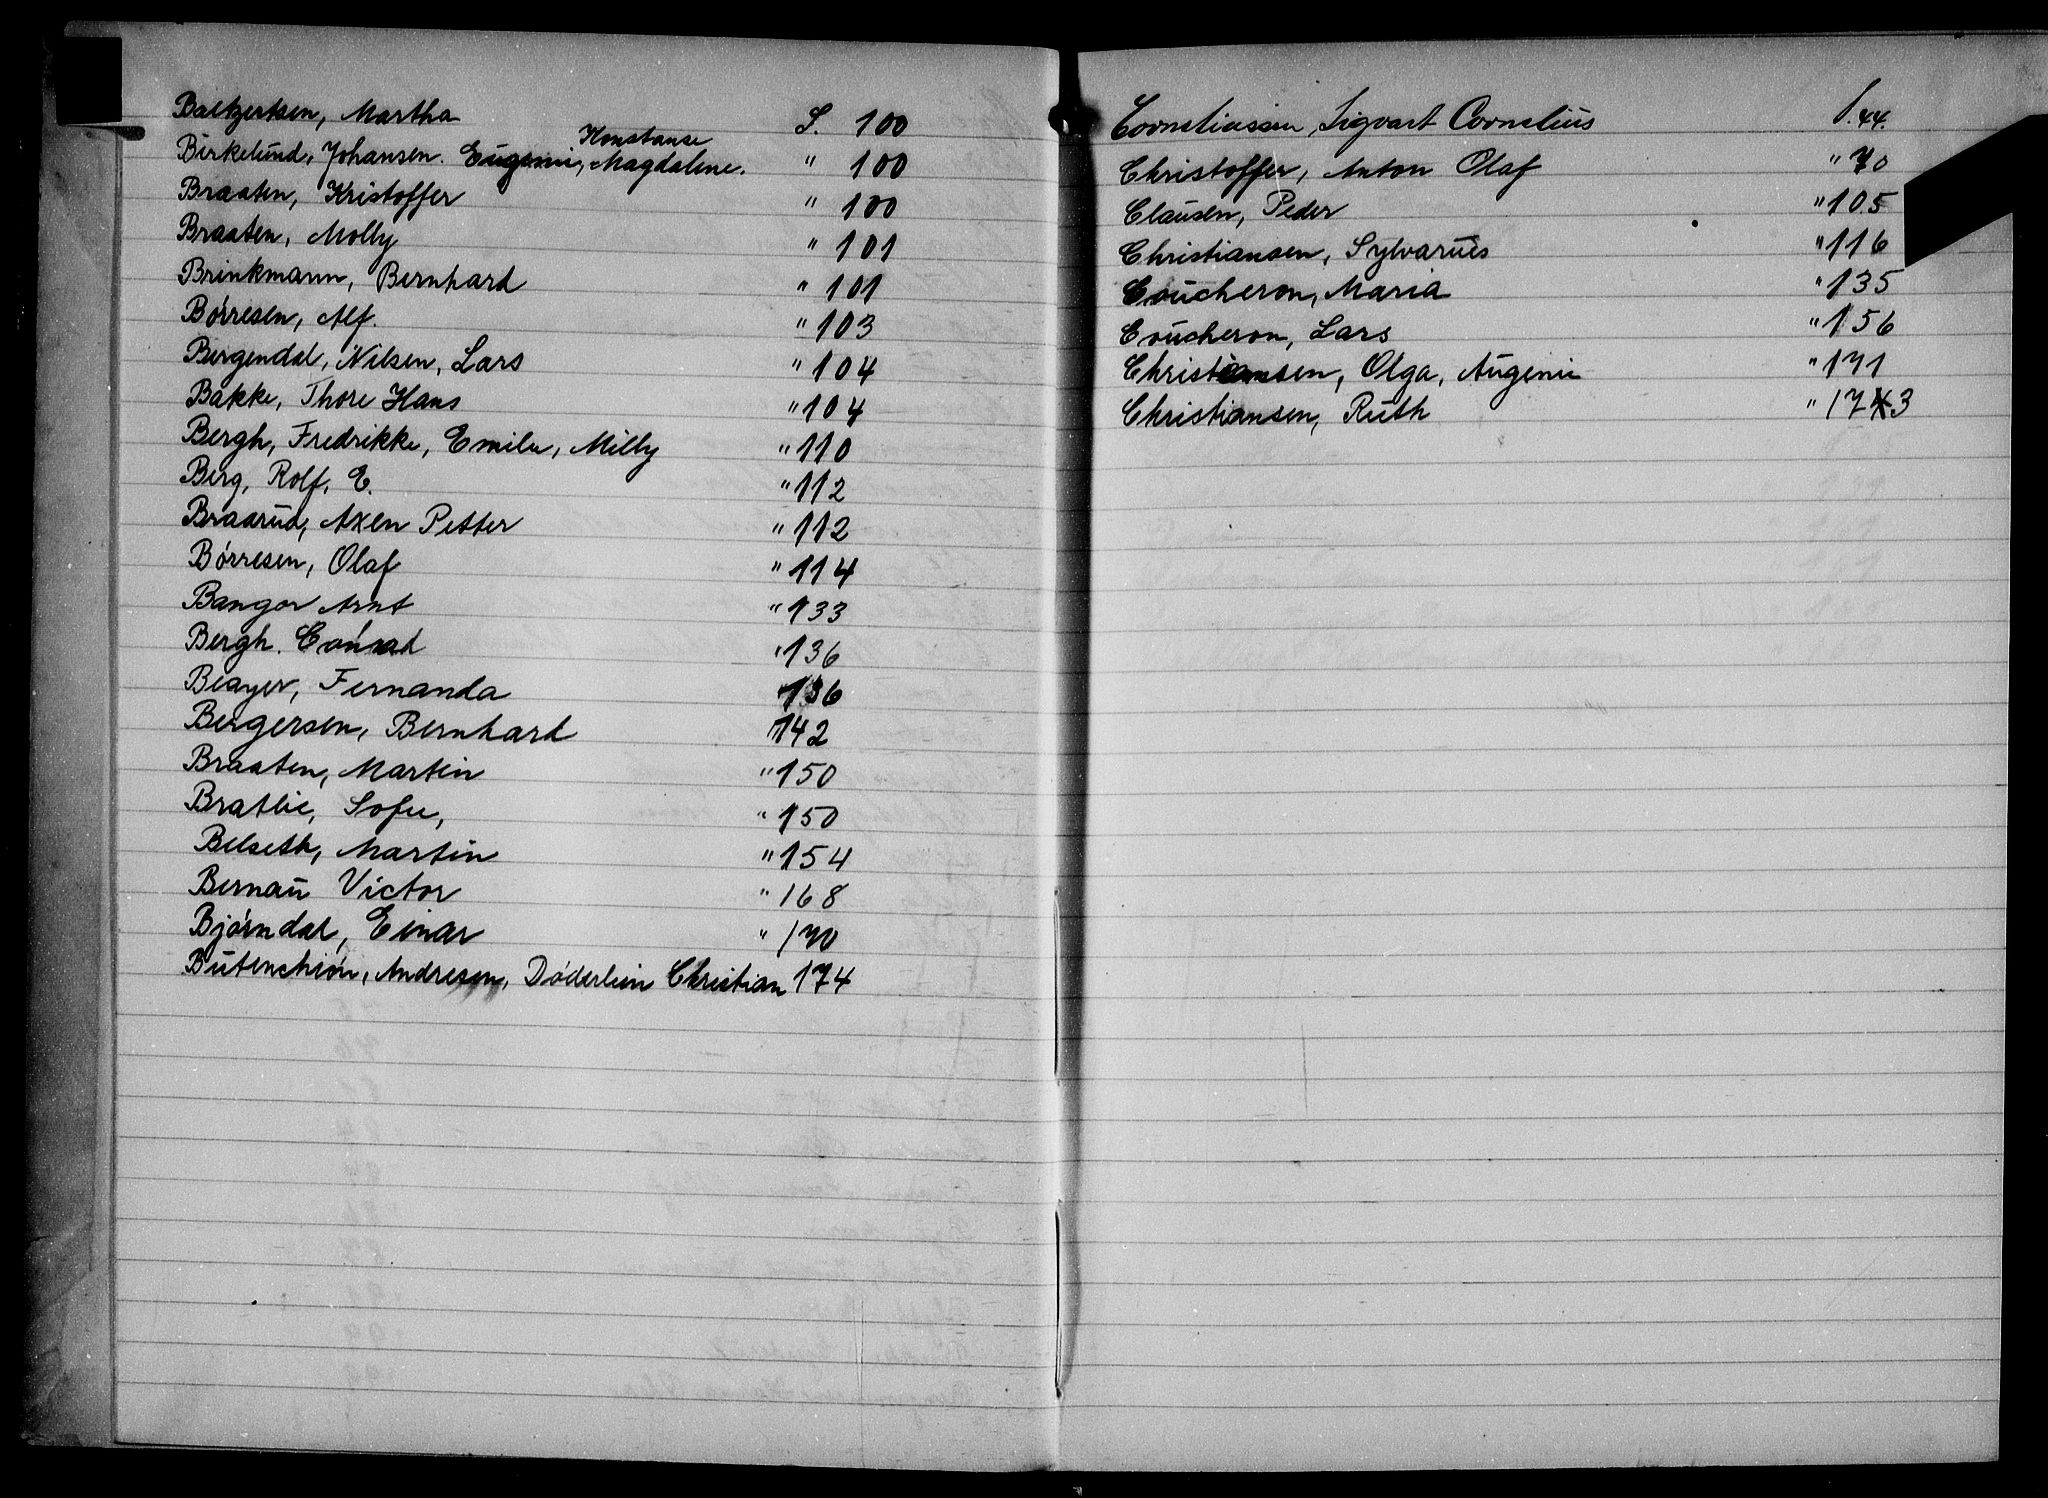 Baltzertsen, Martha S. 100
Konstanse
Birkelund, Johansen. Eugenie, Magdalene. " 100
Braaten, Kristoffer " 100
Braaten, Molly " 101
Brinkmann, Bernhard " 101
Børresen, Alf. " 103
Bergendal, Nilsen, Lars " 104
Bakke, Thore Hans " 104
Bergh, Fredrikke, Emilie, Milly " 110
Berg, Rolf, E. " 112
Braarud, Axen Petter " 112
Børresen, Olaf " 114
Bangor Arnt " 133
Bergh. Conrad " 136
Beayer, Fernanda " 136
Bergersen, Bernhard " 142
Braaten, Martin " 150
Bratlie, Sofie, " 150
Belseth, Martin " 154
Bernau Victor " 168
Bjørndal, Einar " 170
Butenchiøn, Andresen, Døderlein Christian 174
Corneliussen, Sigvart Cornelius S. 44.
Christoffer, Anton Olaf " 70
Clausen, Peder " 105
Christiansen, Sylvarius " 116
Coucheron, Maria " 135
Coucheron, Lars " 156
Christiansen, Olga, Augenie " 171
Christiansen, Ruth " 173